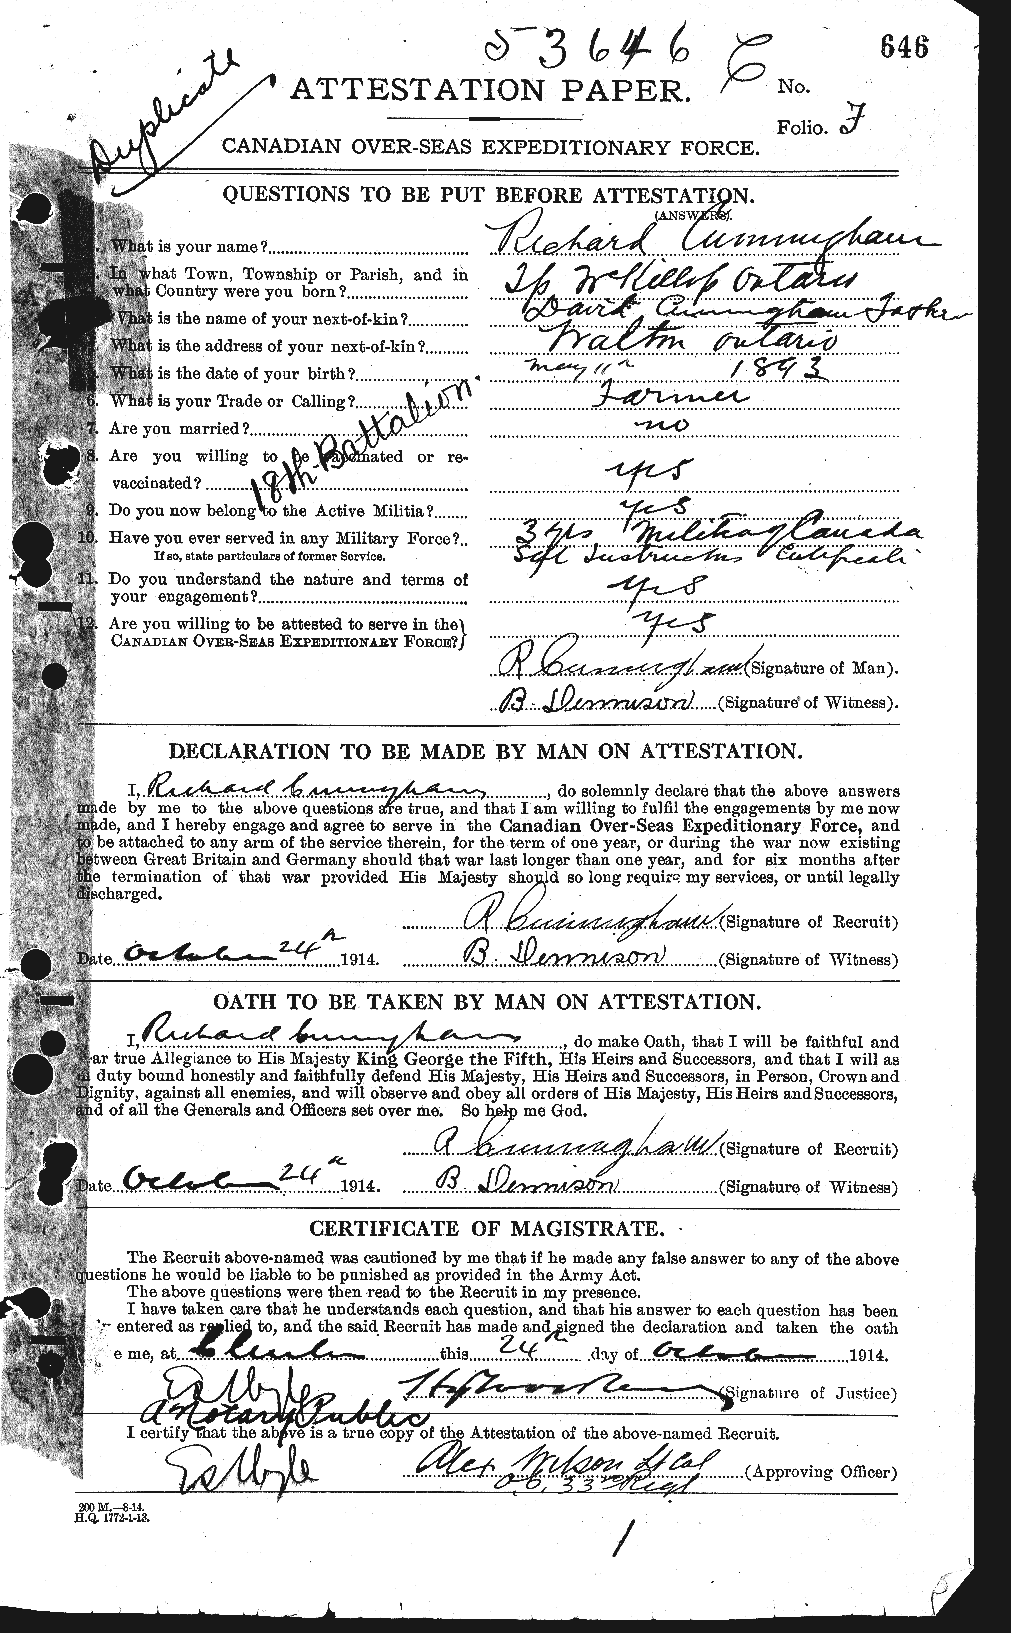 53646 C
646
Duplicate
ATTESTATION PAPER.
No.
Folio. F
CANADIAN OVER-SEAS EXPEDITIONARY FORCE.
QUESTIONS TO BE PUT BEFORE ATTESTATION.
(ANSWERS).
What is your name? Richard Cunningham
In what Town, Township or Parish, and in
what Country were you born? Tp McKillop Ontario
What is the name of your next-of-kin? David Cunningham Father
What is the address of your next-of-kin? Walton Ontario
What is the date of your birth? May 11th 1893
6. What is your Trade or Calling? Farmer
7. Are you married? no
18th Battalion.
8. Are you willing to be vaccinated or re-
vaccinated? yes
9. Do you now belong to the Active Militia? yes
10. Have you ever served in any Military Force?.. 3 yrs Militia of Canada
If so, state particulars of former Service. Sgt Instructors Certificate
11. Do you understand the nature and terms of
your engagement? yes
12. Are you willing to be attested to serve in the
CANADIAN OVER-SEAS EXPEDITIONARY FORCE?} yes
R Cunningham (Signature of Man).
B. Dennison (Signature of Witness).
DECLARATION TO BE MADE BY MAN ON ATTESTATION.
I, Richard Cunningham, do solemnly declare that the above answers
made by me to the above questions are true, and that I am willing to fulfil the engagements by me now
made, and I hereby engage and agree to serve in the Canadian Over-Seas Expeditionary Force, and
to be attached to any arm of the service therein, for the term of one year, or during the war now existing
between Great Britain and Germany should that war last longer than one year, and for six months after
the termination of that war provided His Majesty should so long require my services, or until legally
discharged.
R Cunningham (Signature of Recruit)
Date October 24th 1914. B. Dennison (Signature of Witness)
OATH TO BE TAKEN BY MAN ON ATTESTATION.
I, Richard Cunningham, do make Oath, that I will be faithful and
ar true Allegiance to His Majesty King George the Fifth, His Heirs and Successors, and that I will as
duty bound honestly and faithfully defend His Majesty, His Heirs and Successors, in Person, Crown and
Dignity, against all enemies, and will observe and obey all orders of His Majesty, His Heirs and Successors,
and of all the Generals and Officers set over me. So help me God.
R Cunningham (Signature of Recruit)
Date October 24th 1914. B. Dennison (Signature of Witness)
CERTIFICATE OF MAGISTRATE.
The Recruit above-named was cautioned by me that if he made any false answer to any of the above
questions he would be liable to be punished as provided in the Army Act.
The above questions were then read to the Recruit in my presence.
I have taken care that he understands each question, and that his answer to each question has been
entered as replied to, and the said Recruit has made and signed the declaration and taken the oath
e me, at Clinton this 24th day of October 1914.
(Signature of Justice)
a Notary Public
I certify that the above is a true copy of the Attestation of the above-named Recruit.
Alex Wilson Lt Col (Approving Officer)
O.C. 33rd Regt
200 M.—8-14.
H.Q. 1772-1-13.
1